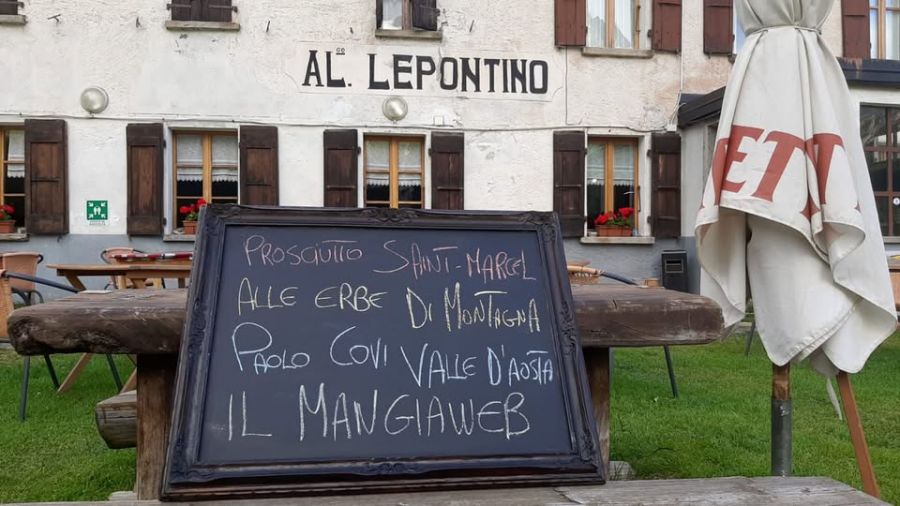 ALGO. LEPONTINO
ETI
PROSCIUTTO SAINT-MARCEL
ALLE ERBE DI MONTAGNA
PAOLO COVI VALLE D'AOSTA
IL MANGIAWEB